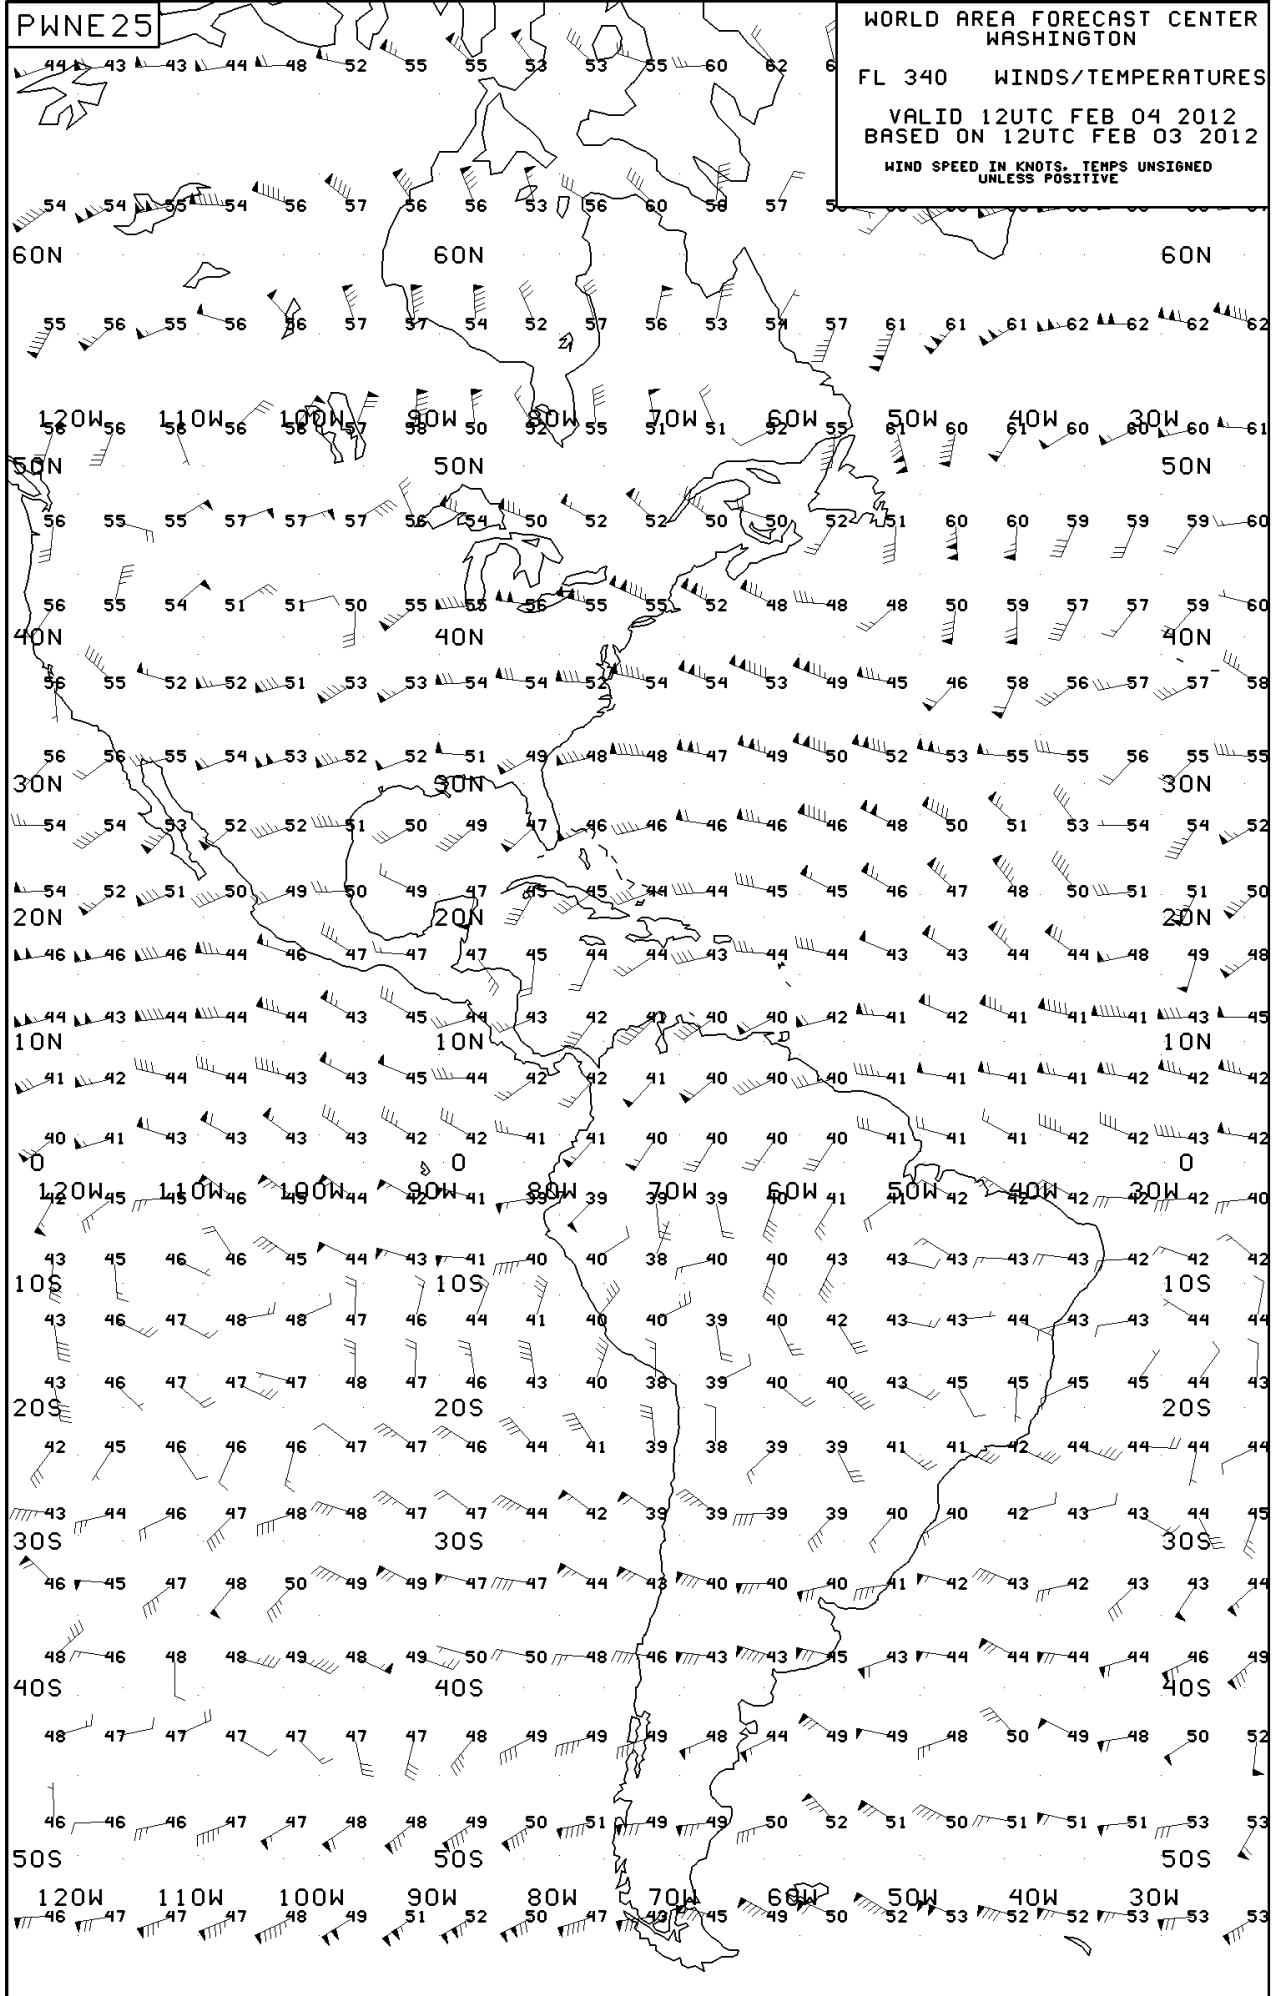 PWNE25
WORLD AREA FORECAST CENTER
WASHINGTON
FL 340 WINDS/TEMPERATURES
VALID 12UTC FEB 04 2012
BASED ON 12UTC FEB 03 2012
WIND SPEED IN KNOTS, TEMPS UNSIGNED
UNLESS POSITIVE
44 43 43 44 48 52 55 55 53 53 55 60 62
54 54 55 54 56 57 56 56 53 56 60 56 57
60N 60N 60N
55 56 55 56 56 57 57 54 52 57 56 53 54 57 61 61 61 62 62 62 62
120W 110W 100W 90W 80W 70W 60W 50W 40W 30W
56 56 56 56 56 57 58 50 52 55 51 51 52 55 61 60 61 60 60 60 61
50N 50N 50N
56 55 55 57 57 57 56 54 50 52 52 50 50 52 51 60 60 59 59 59 60
56 55 54 51 51 50 55 55 56 55 55 52 48 48 48 50 59 57 57 59 60
40N 40N 40N
56 55 52 52 51 53 53 54 54 52 54 54 53 49 45 46 58 56 57 57 58
56 56 55 54 53 52 52 51 49 48 48 47 49 50 52 53 55 55 56 55 55
30N 30N 30N
54 54 53 52 52 51 50 49 47 46 46 46 46 46 48 50 51 53 54 54 52
54 52 51 50 49 50 49 47 45 45 44 44 45 45 46 47 48 50 51 51 50
20N 20N 20N
46 46 46 44 46 47 47 47 45 44 44 43 44 44 43 43 44 44 48 49 48
44 43 44 44 44 43 45 44 43 42 41 40 40 42 41 42 41 41 41 43 45
10N 10N 10N
41 42 44 44 43 43 45 44 42 42 41 40 40 40 41 41 41 41 42 42 42
40 41 43 43 43 43 42 42 41 41 40 40 40 40 41 41 41 42 42 43 42
0 0 0
120W 110W 100W 90W 80W 70W 60W 50W 40W 30W
42 45 45 46 45 44 42 41 39 39 39 39 40 41 41 42 42 42 42 42 40
43 45 46 46 45 44 43 41 40 40 38 40 40 43 43 43 43 43 42 42 42
10S 10S 10S
43 46 47 48 48 47 46 44 41 40 40 39 43 42 43 43 44 43 43 44 44
43 46 47 47 47 48 47 46 43 40 38 39 40 40 43 45 45 45 45 44 43
20S 20S 20S
42 45 46 46 46 47 47 46 44 41 39 38 39 39 41 41 42 44 44 44 44
43 44 46 47 48 48 47 47 44 42 39 39 39 39 40 40 42 43 43 44 45
30S 30S 30S
46 45 47 48 50 49 49 47 47 44 43 40 40 40 41 42 43 42 43 43 44
48 46 48 48 49 48 49 50 50 48 46 43 43 45 43 44 44 44 44 46 49
40S 40S 40S
48 47 47 47 47 47 47 48 49 49 49 48 44 49 49 48 50 49 48 50 52
46 46 46 47 47 48 48 49 50 51 49 49 50 52 51 50 52 51 51 53 53
50S 50S 50S
120W 110W 100W 90W 80W 70W 60W 50W 40W 30W
46 47 47 47 48 49 51 52 50 47 43 45 49 50 52 53 52 52 53 53 53